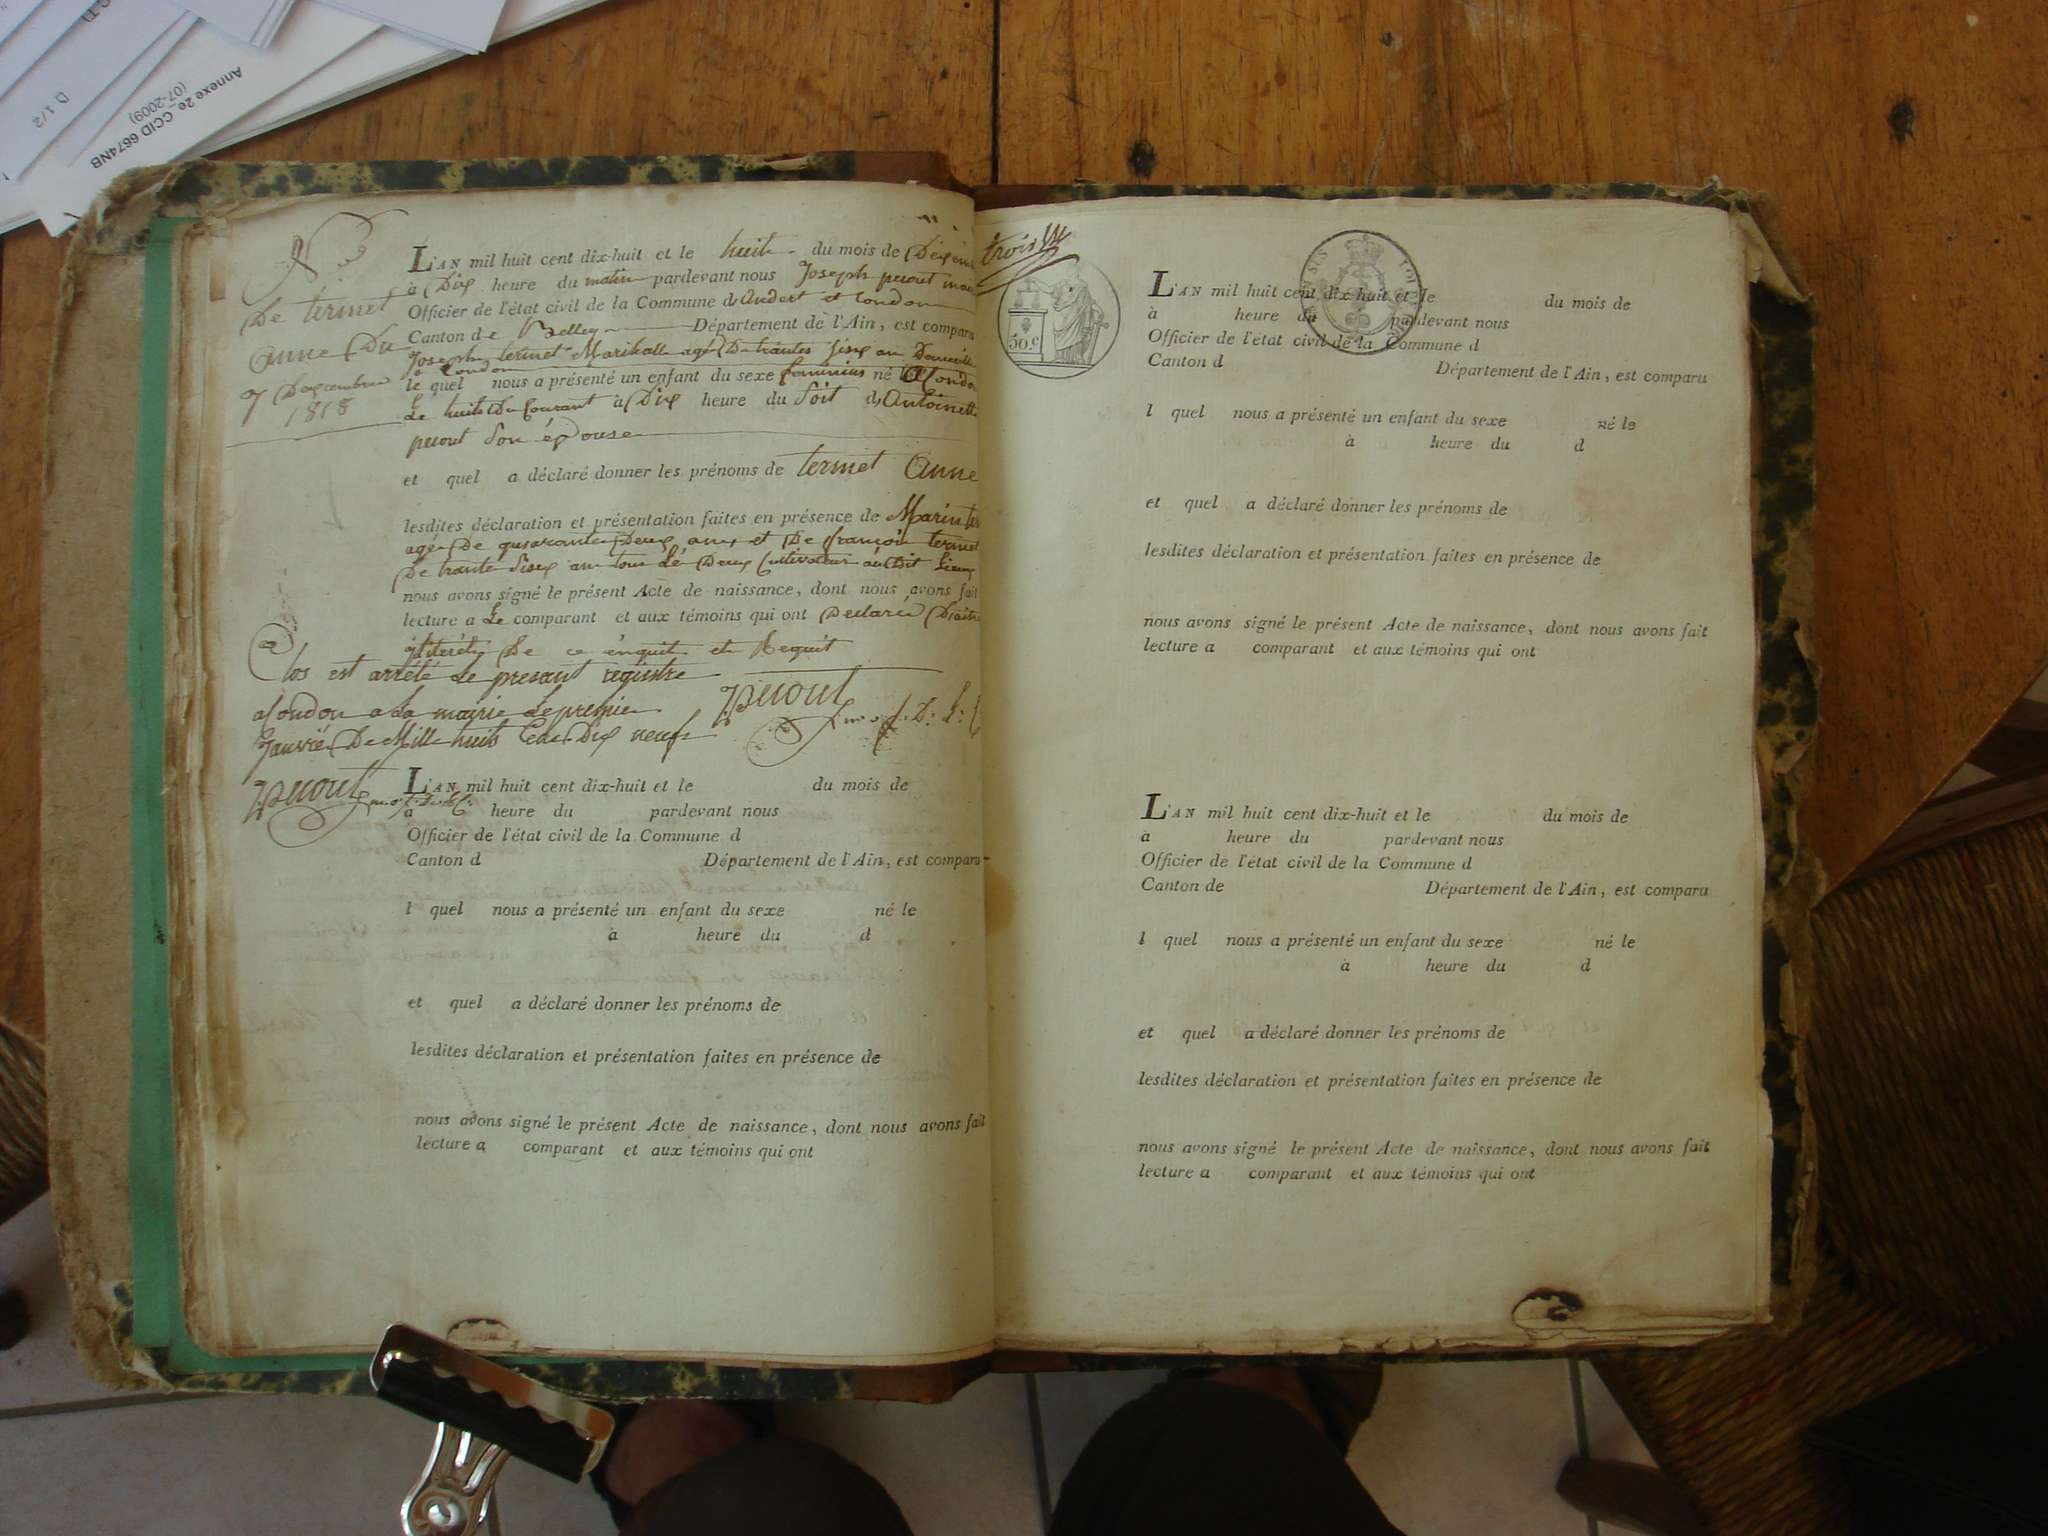 Annexe 2e_CCID 6674NB
(07-2009)
D 1/2
N
De termet
anne Du
7 Decembre
1818
L'AN mil huit cent dix-huit et le huit du mois de
à Dix heure du matin pardevant nous Joseph
Officier de l'état civil de la Commune d'andert et Condon
Canton de Belley Département de l'Ain, est comparu
Joseph termet agé De trantes sixe an
a Condon
le quel nous a présenté un enfant du sexe feminins né a Condon
Le huits Du Courant à Dix heure du Soit d'Antoinette
son épouse
et quel a déclaré donner les prénoms de termet Anne
lesdites déclaration et présentation faites en présence de Marin
agé De quarante Deux ans et De françois termet
De trante sixe an tous Lé Deux Cultivateur audit Lieux
nous avons signé le présent Acte de naissance, dont nous avons fait
lecture a Le comparant et aux témoins qui ont Declaré
De ce enquit et Requit
Clos est arrété Le present registre
a Condon a La mairie Le premier
Janvié De Mille huits Cent Dix neufs
L'AN mil huit cent dix-huit et le du mois de
à heure du pardevant nous
Officier de l'état civil de la Commune d
Canton d Département de l'Ain, est comparu
l quel nous a présenté un enfant du sexe né le
à heure du d
et quel a déclaré donner les prénoms de
lesdites déclaration et présentation faites en présence de
nous avons signé le présent Acte de naissance, dont nous avons fait
lecture a comparant et aux témoins qui ont
trois
50.c
L'AN mil huit cent dix-huit et le du mois de
à heure du pardevant nous
Officier de l'état civil de la Commune d
Canton d Département de l'Ain, est comparu
l quel nous a présenté un enfant du sexe né le
à heure du d
et quel a déclaré donner les prénoms de
lesdites déclaration et présentation faites en présence de
nous avons signé le présent Acte de naissance, dont nous avons fait
lecture a comparant et aux témoins qui ont
L'AN mil huit cent dix-huit et le du mois de
à heure du pardevant nous
Officier de l'état civil de la Commune d
Canton de Département de l'Ain, est comparu
l quel nous a présenté un enfant du sexe né le
à heure du d
et quel a déclaré donner les prénoms de
lesdites déclaration et présentation faites en présence de
nous avons signé le présent Acte de naissance, dont nous avons fait
lecture a comparant et aux témoins qui ont